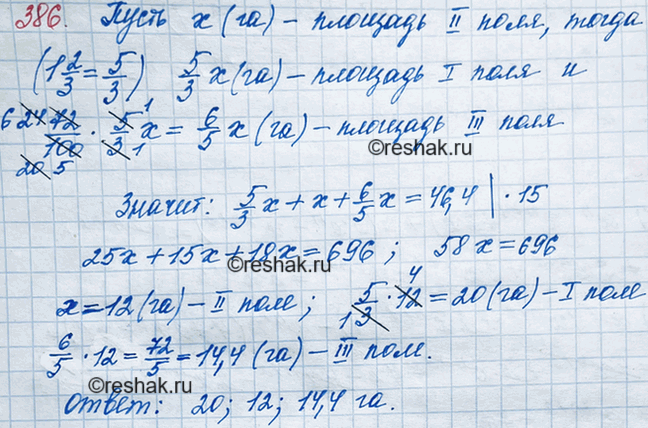 386. Пусть x (га) – площадь II поля, тогда
(1 2/3 = 5/3) 5/3 x (га) – площадь I поля и
6 24 72/100 · 5/3 x = 6/5 x (га) – площадь III поля
20 5 1 1
©reshak.ru
©reshak.ru
Значит: 5/3 x + x + 6/5 x = 46,4 | · 15
25x + 15x + 18x = 696 ; 58x = 696
©reshak.ru
x = 12 (га) – II поле ; 5/3 · 12 = 20 (га) – I поле
1 4
6/5 · 12 = 72/5 = 14,4 (га) – III поле.
©reshak.ru
©reshak.ru
Ответ: 20; 12; 14,4 га.